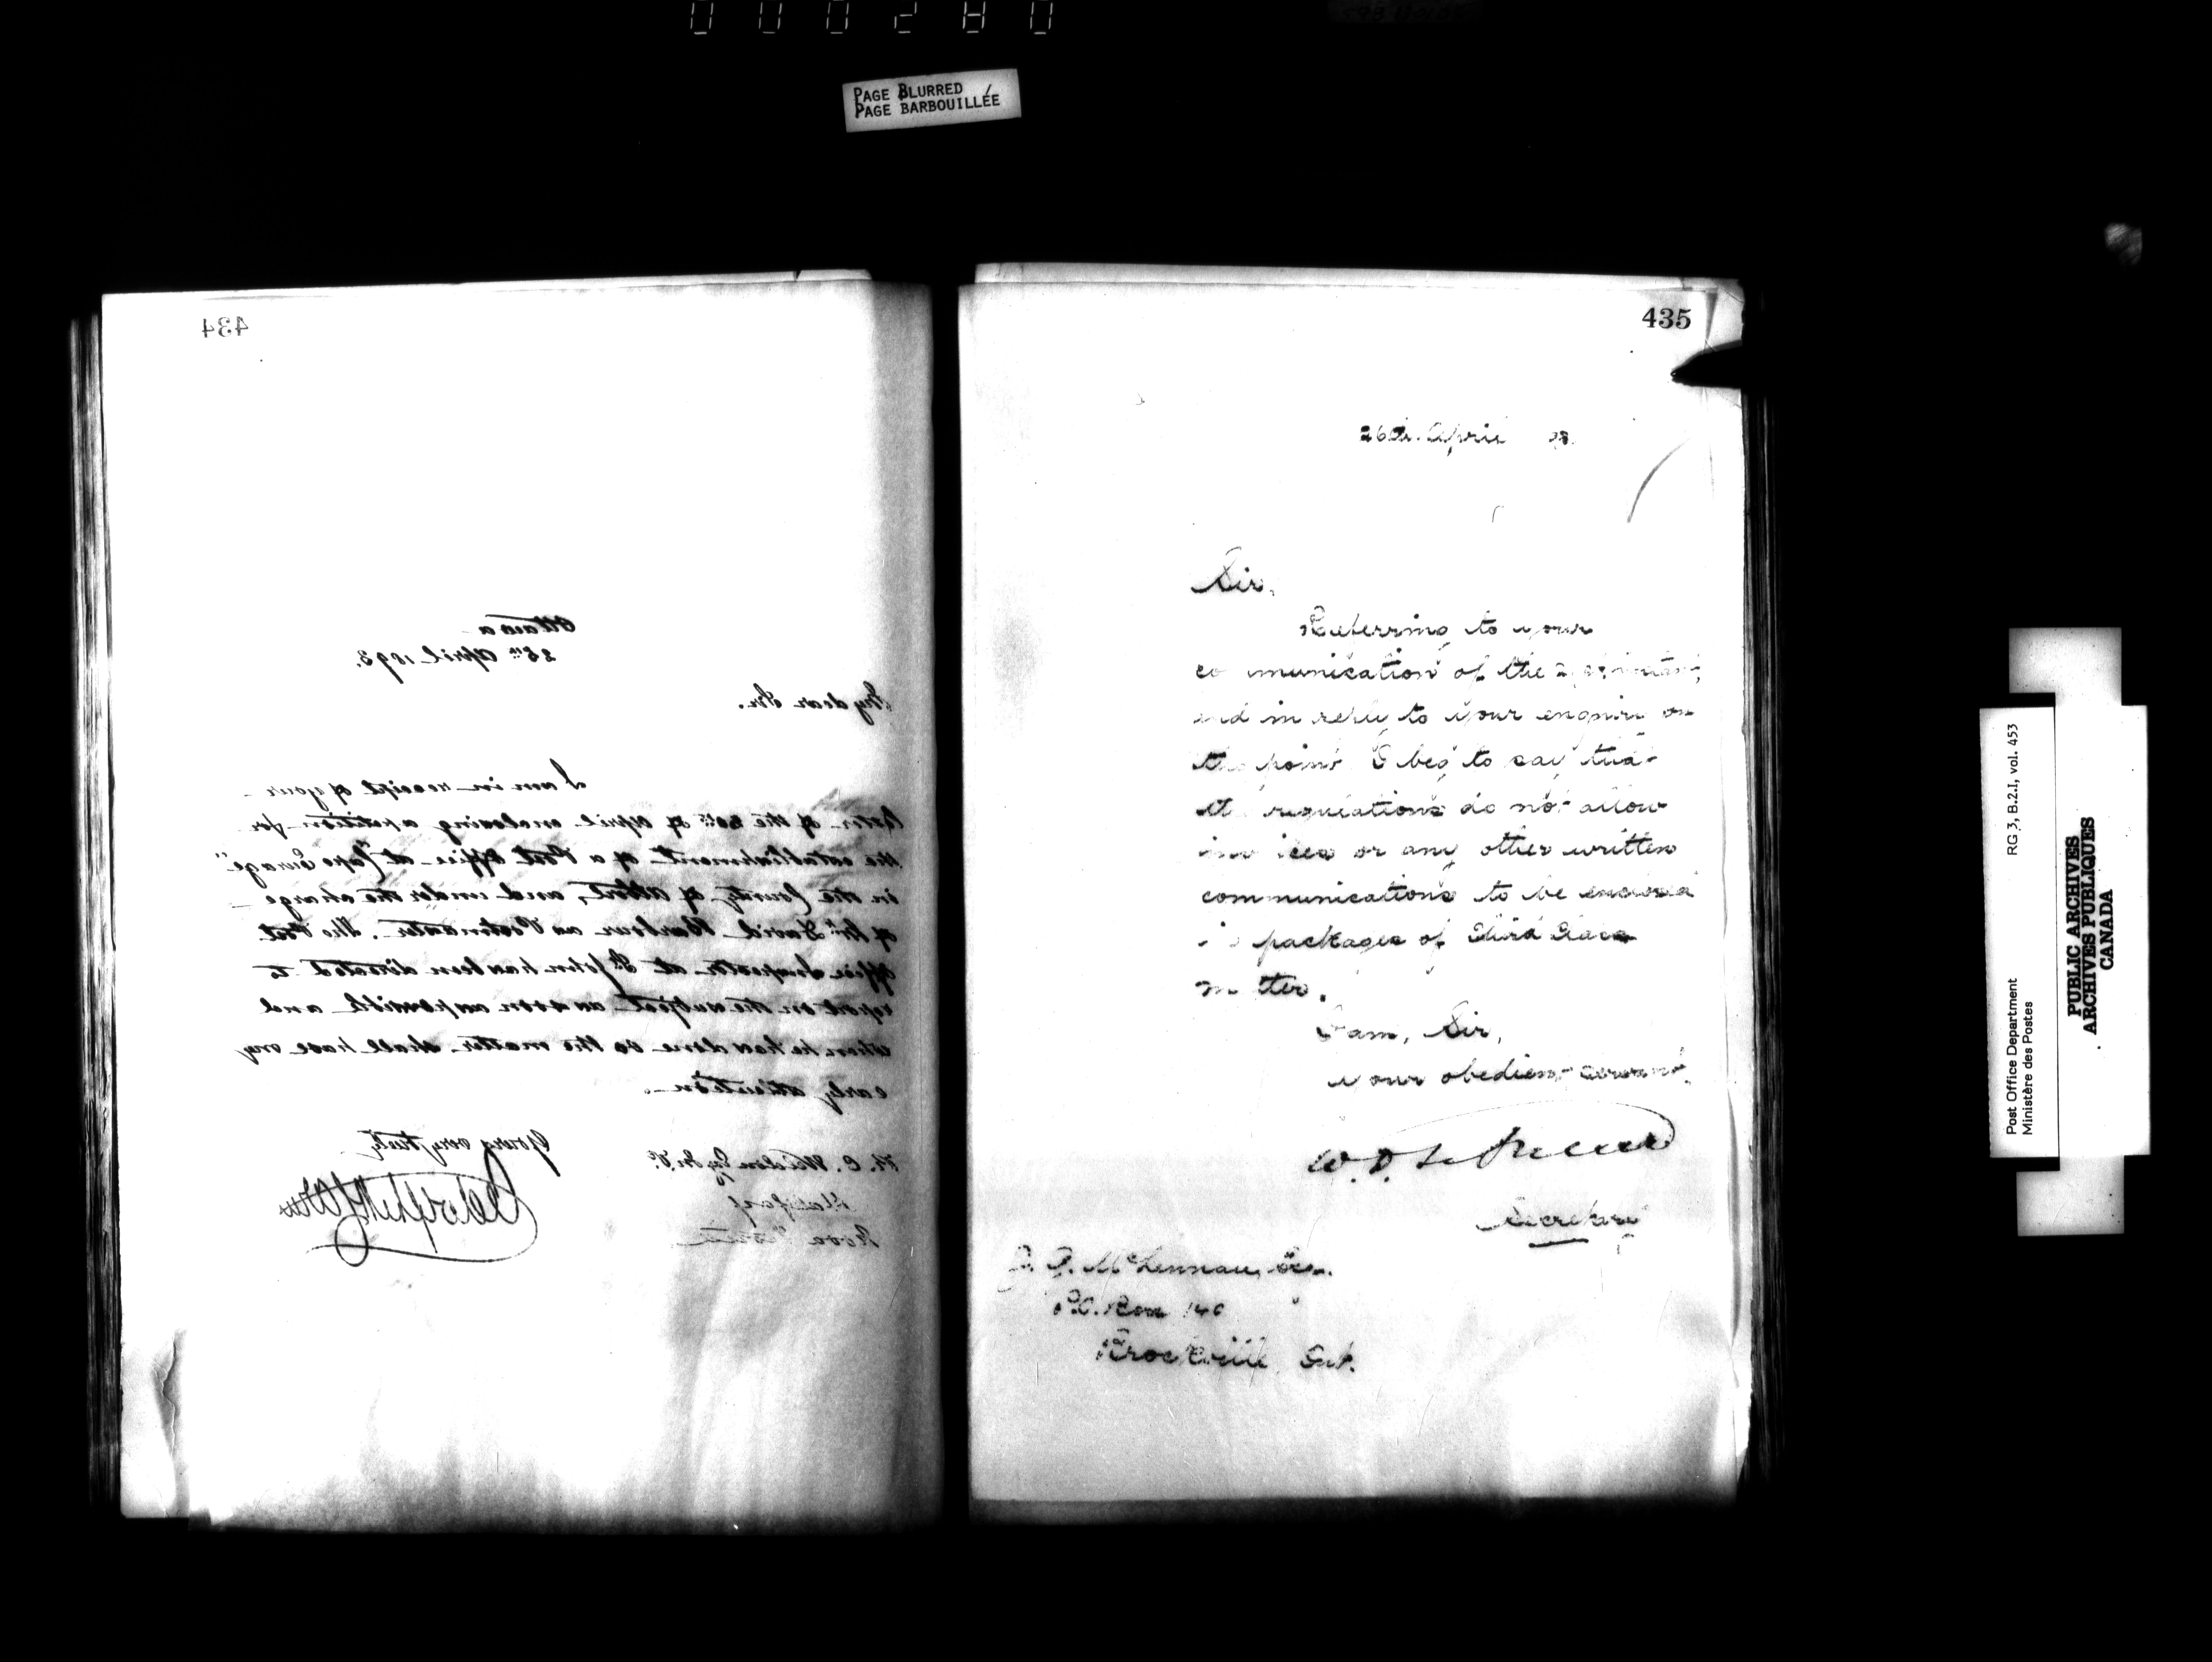 PAGE BLURRED
PAGE BARBOUILLÉE
434
Ottawa
25th April 1893.
My dear Sir.
I am in receipt of your
letter of the 20th of April enclosing a petition for
the establishment of a Post Office at "Cape Enragé"
in the County of Albert, and under the charge
of Mr. David Barbour as Postmaster. The Post
Office Inspector at St John has been directed to
report on the subject as soon as possible and
when he has done so the matter shall have my
early attention.
Yours very truly
R. C. Weldon Esq. M.P.
Halifax
Nova Scotia
435
26th April 93.
Sir,
Referring to your
communication of the instant,
and in reply to your enquiry on
the point I beg to say that
the regulations do not allow
invoices or any other written
communications to be enclosed
in packages of third class
matter.
I am, Sir,
Your obedient servant,
W. D. LeSueur
Secretary
P. McLennan, Esq.
P.O. Box 140
Brockville, Ont.
Post Office Department RG 3, B.2.I, vol. 453
Ministère des Postes
PUBLIC ARCHIVES
ARCHIVES PUBLIQUES
CANADA